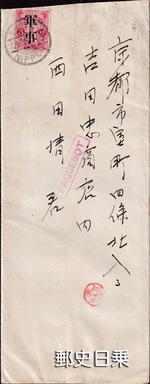 京都市室町四條北入ル
吉田忠商店内
西田情君
軍事
NIPPON
PAQUEBOT
郵史日乗